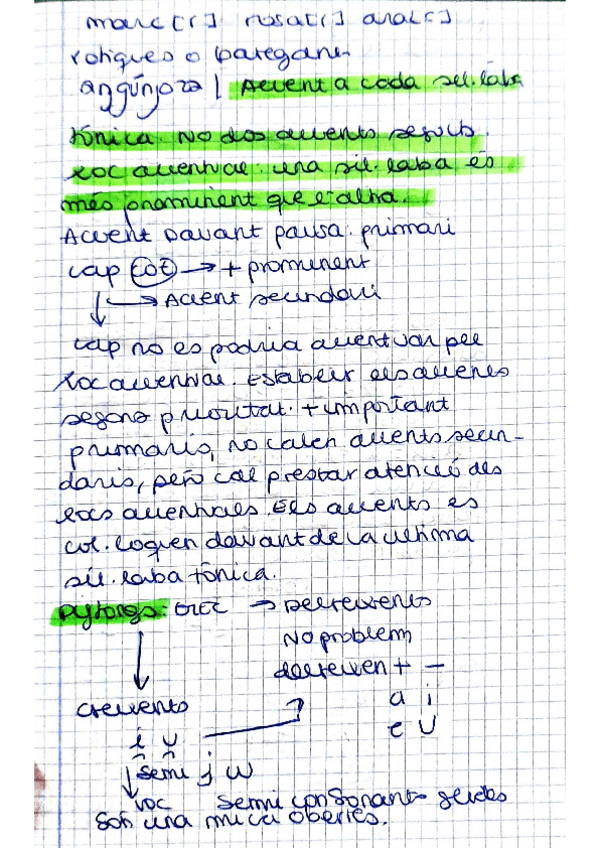 marc [r] rosat[] anal[]
rotiques o bategant
angúnjoza | Accent a cada síl·laba
tònica. No dos accents seguits.
xoc accentual: una síl·laba és
més prominent que l'altra.
Accent davant pausa: primari
cap tot → + prominent
→ Accent secundari
cap no es podria accentuar pel
xoc accentual. Establir els accents
segons prioritat: + important
primaris, no calen accents secun-
daris, però cal prestar atenció als
xocs accentuals. Els accents es
col·loquen davant de la última
síl·laba tònica.
→ Decreixents
No problem
decreixen + −
Creixents a i
i u e U
semi j w
voc semi consonants glides
Són una mica obertes.